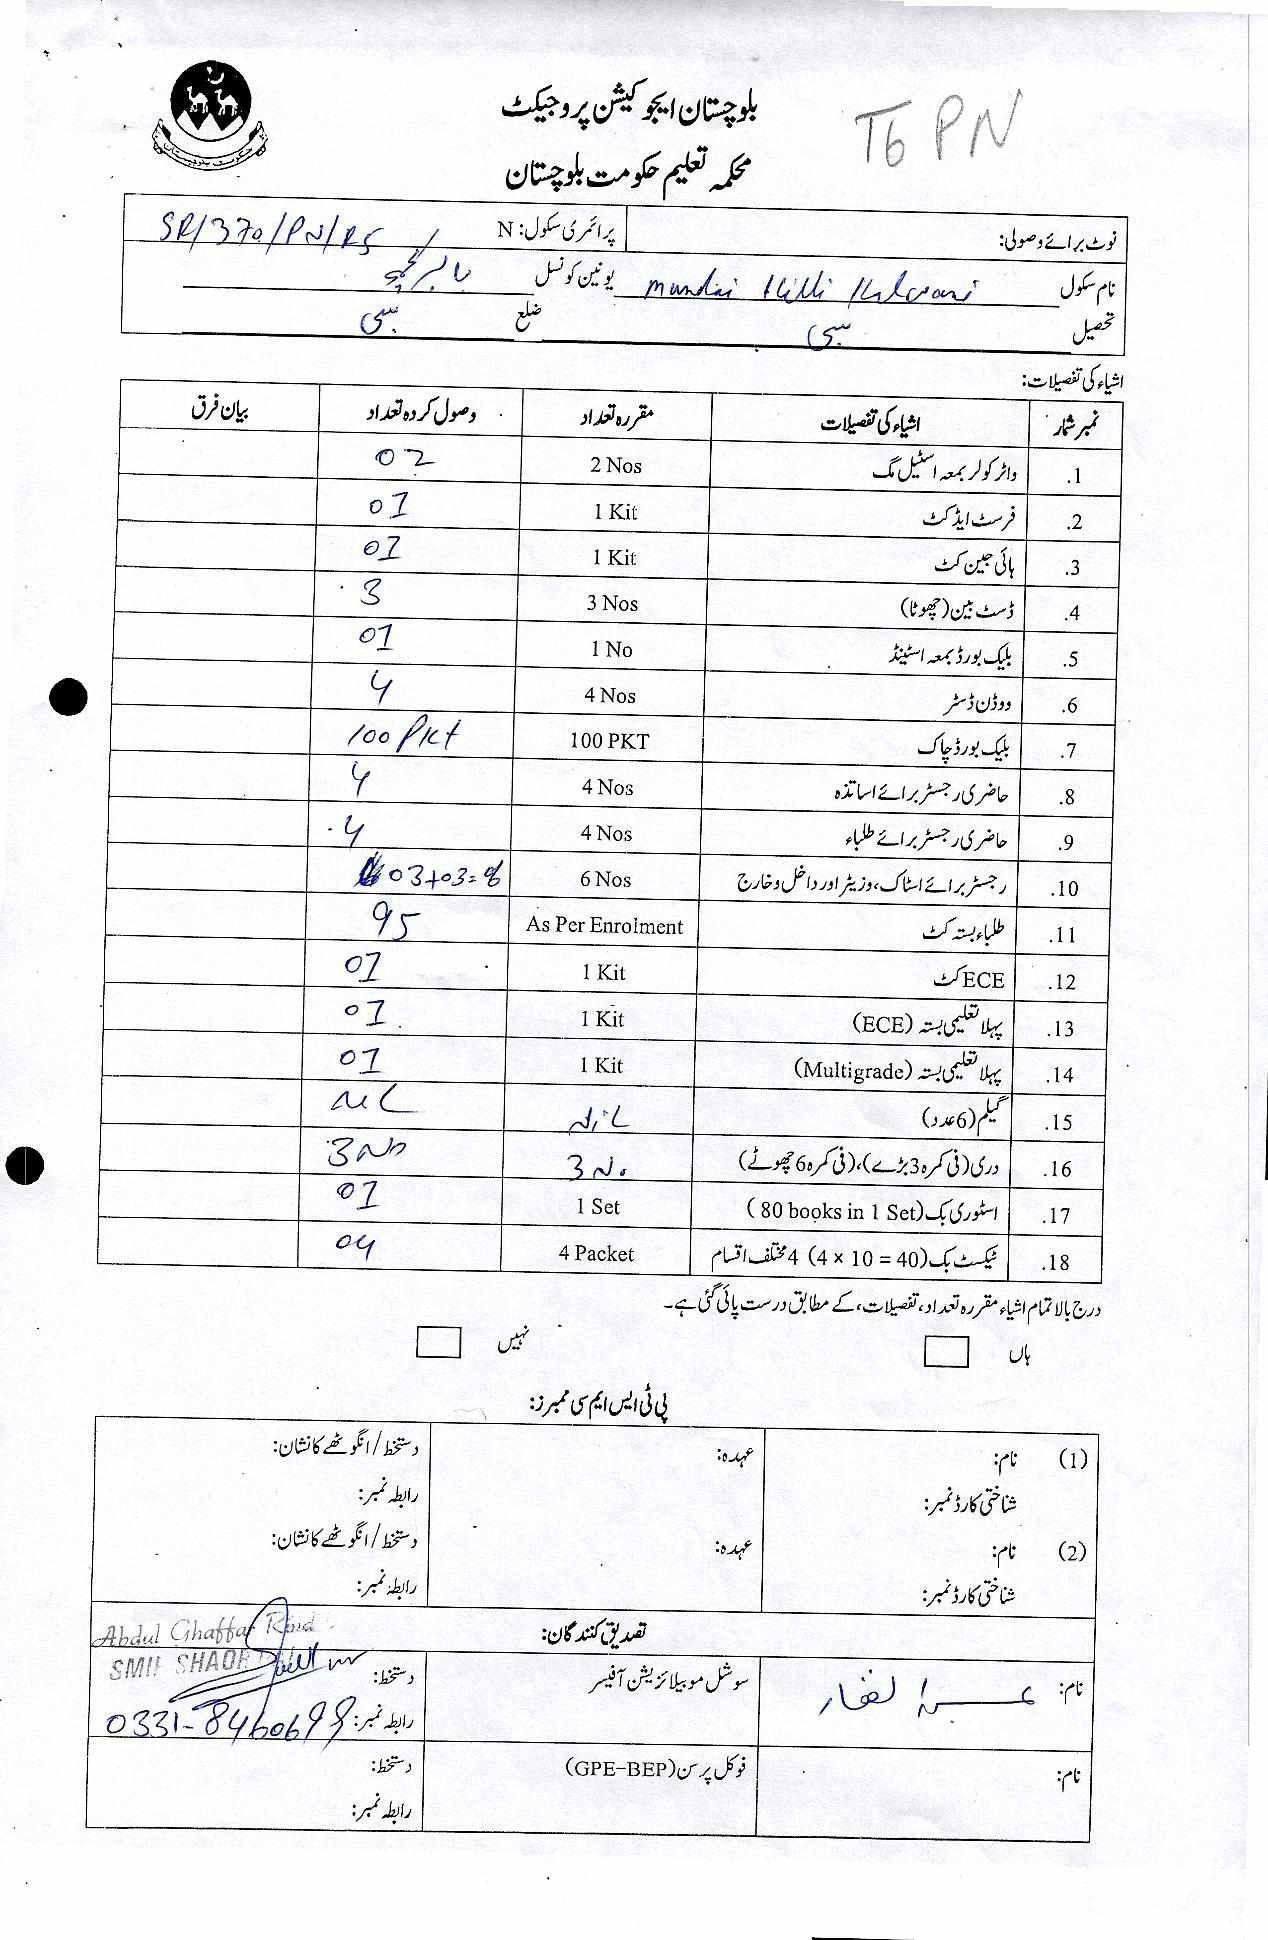 بلوچستان ایجوکیشن پروجیکٹ
T6 PN
محکمہ تعلیم حکومت بلوچستان
حکومت بلوچستان
نوٹ برائے وصولی:
پرائمری سکول: N SR/370/PN/RS
نام سکول Mundai Killi یونین کونسل
تحصیل سبی ضلع سبی
اشیاء کی تفصیلات:
نمبر شمار اشیاء کی تفصیلات مقررہ تعداد وصول کردہ تعداد بیان فرق
1. واٹر کولر بمعہ اسٹیل مگ 2 Nos 02
2. فرسٹ ایڈ کٹ 1 Kit 01
3. ہائی جین کٹ 1 Kit 01
4. ڈسٹ بین (چھوٹا) 3 Nos 3
5. بلیک بورڈ بمعہ اسٹینڈ 1 No 01
6. ووڈن ڈسٹر 4 Nos 4
7. بلیک بورڈ چاک 100 PKT 100 Pkt
8. حاضری رجسٹر برائے اساتذہ 4 Nos 4
9. حاضری رجسٹر برائے طلباء 4 Nos 4
10. رجسٹر برائے اسٹاک، وزیٹر اور داخل و خارج 6 Nos 03+03=6
11. طلباء بستہ کٹ As Per Enrolment 95
12. ECE کٹ 1 Kit 01
13. پہلا تعلیمی بستہ (ECE) 1 Kit 01
14. پہلا تعلیمی بستہ (Multigrade) 1 Kit 01
15. گیلم (6 عدد) NiL NiL
16. دری (فی کمرہ 3 بڑے)، (فی کمرہ 6 چھوٹے) 3 No 3 No
17. اسٹوری بک (80 books in 1 Set) 1 Set 01
18. ٹیکسٹ بک (4 x 10 = 40) 4 مختلف اقسام 4 Packet 04
درج بالا تمام اشیاء مقررہ تعداد، تفصیلات، کے مطابق درست پائی گئی ہے۔
ہاں نہیں
پی ٹی ایس ایم سی ممبرز:
(1) نام: عہدہ: دستخط/انگوٹھے کا نشان:
شناختی کارڈ نمبر: رابطہ نمبر:
(2) نام: عہدہ: دستخط/انگوٹھے کا نشان:
شناختی کارڈ نمبر: رابطہ نمبر:
تصدیق کنندگان:
Abdul Ghaffar Rind
نام: عبدالغفار سوشل موبیلائزیشن آفیسر دستخط:
رابطہ نمبر: 0331-8460699
نام: فوکل پرسن (GPE-BEP) دستخط:
رابطہ نمبر: